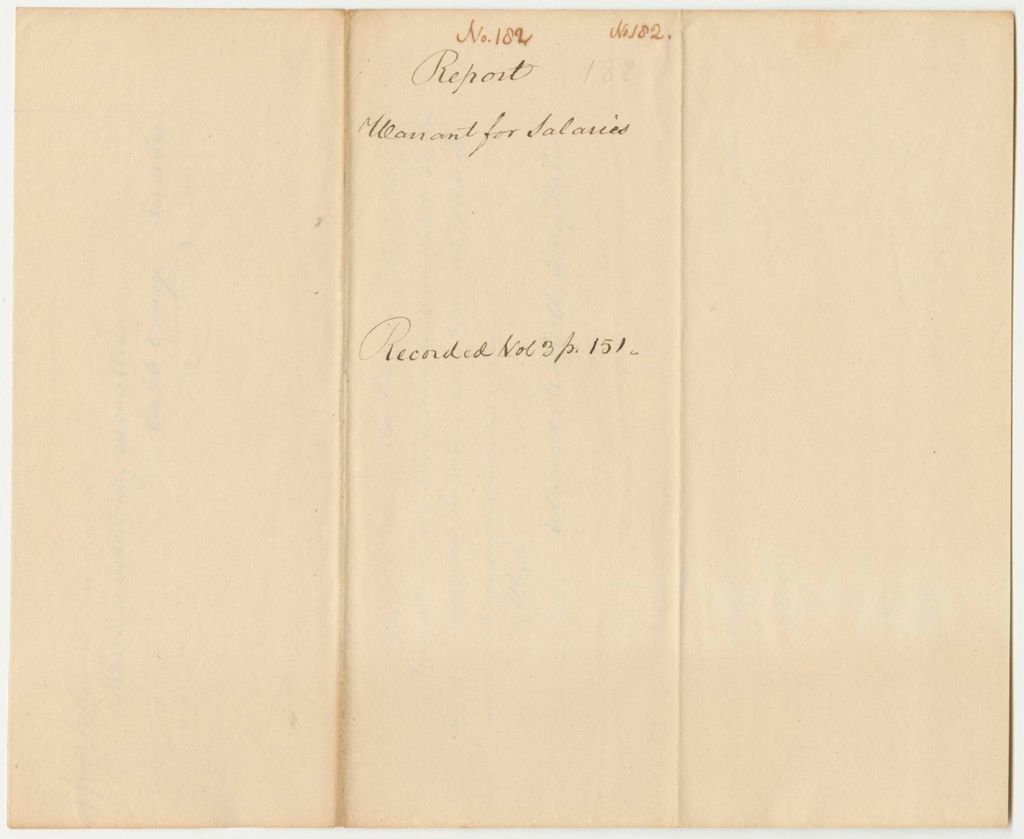 No. 182 No. 182.
Report 182
Warrant for Salaries
Recorded Vol 3 p. 151.